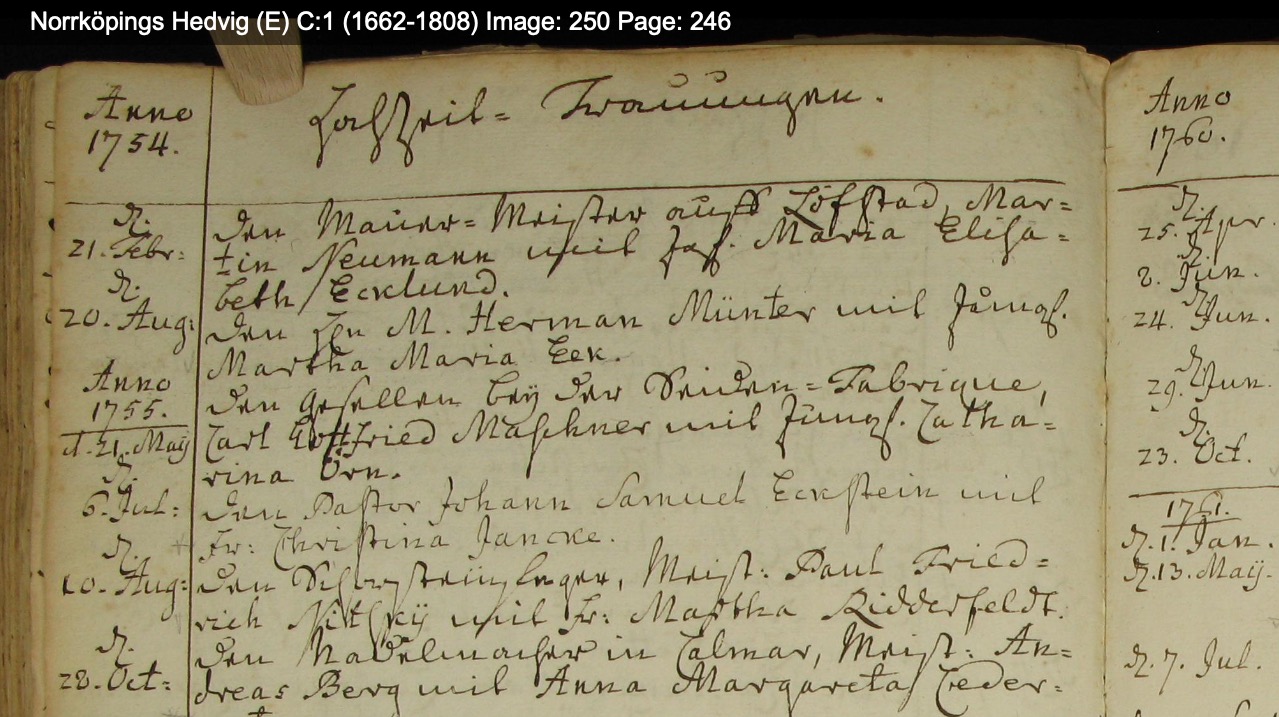 Norrköpings Hedvig (E) C:1 (1662-1808) Image: 250 Page: 246
Anno
1754.
Hochzeit= Trauungen.
d.
21. Febr:
den Mauer=Meister auff Löfstad, Mar=
tin Neumann mit Jgf. Maria Elisa=
beth Ecklund.
d.
20. Aug:
den Hrn M. Herman Münter mit Jungf.
Martha Maria Eek.
Anno
1755.
d. 21. May
den Gesellen bey der Seiden=Fabrique,
Carl Gottfried Maschner mit Jungf. Catha=
rina Örn.
d.
6. Jul:
den Pastor Johann Samuel Eckstein mit
Fr: Christina Jancke.
d.
10. Aug:
den Schorsteinfeger, Meist: Paul Fried=
rich mit Fr: Martha Ridderfeldt.
d.
28. Oct:
den Nadelmacher in Calmar, Meist: An=
dreas Berg mit Anna Margareta Ceder=
Anno
1760.
d.
25. Apr.
d.
8. Jun.
d.
24. Jun.
d.
29. Jun.
d.
23. Oct.
1761.
d. 1. Jan.
d. 13. Maÿ.
d. 7. Jul.